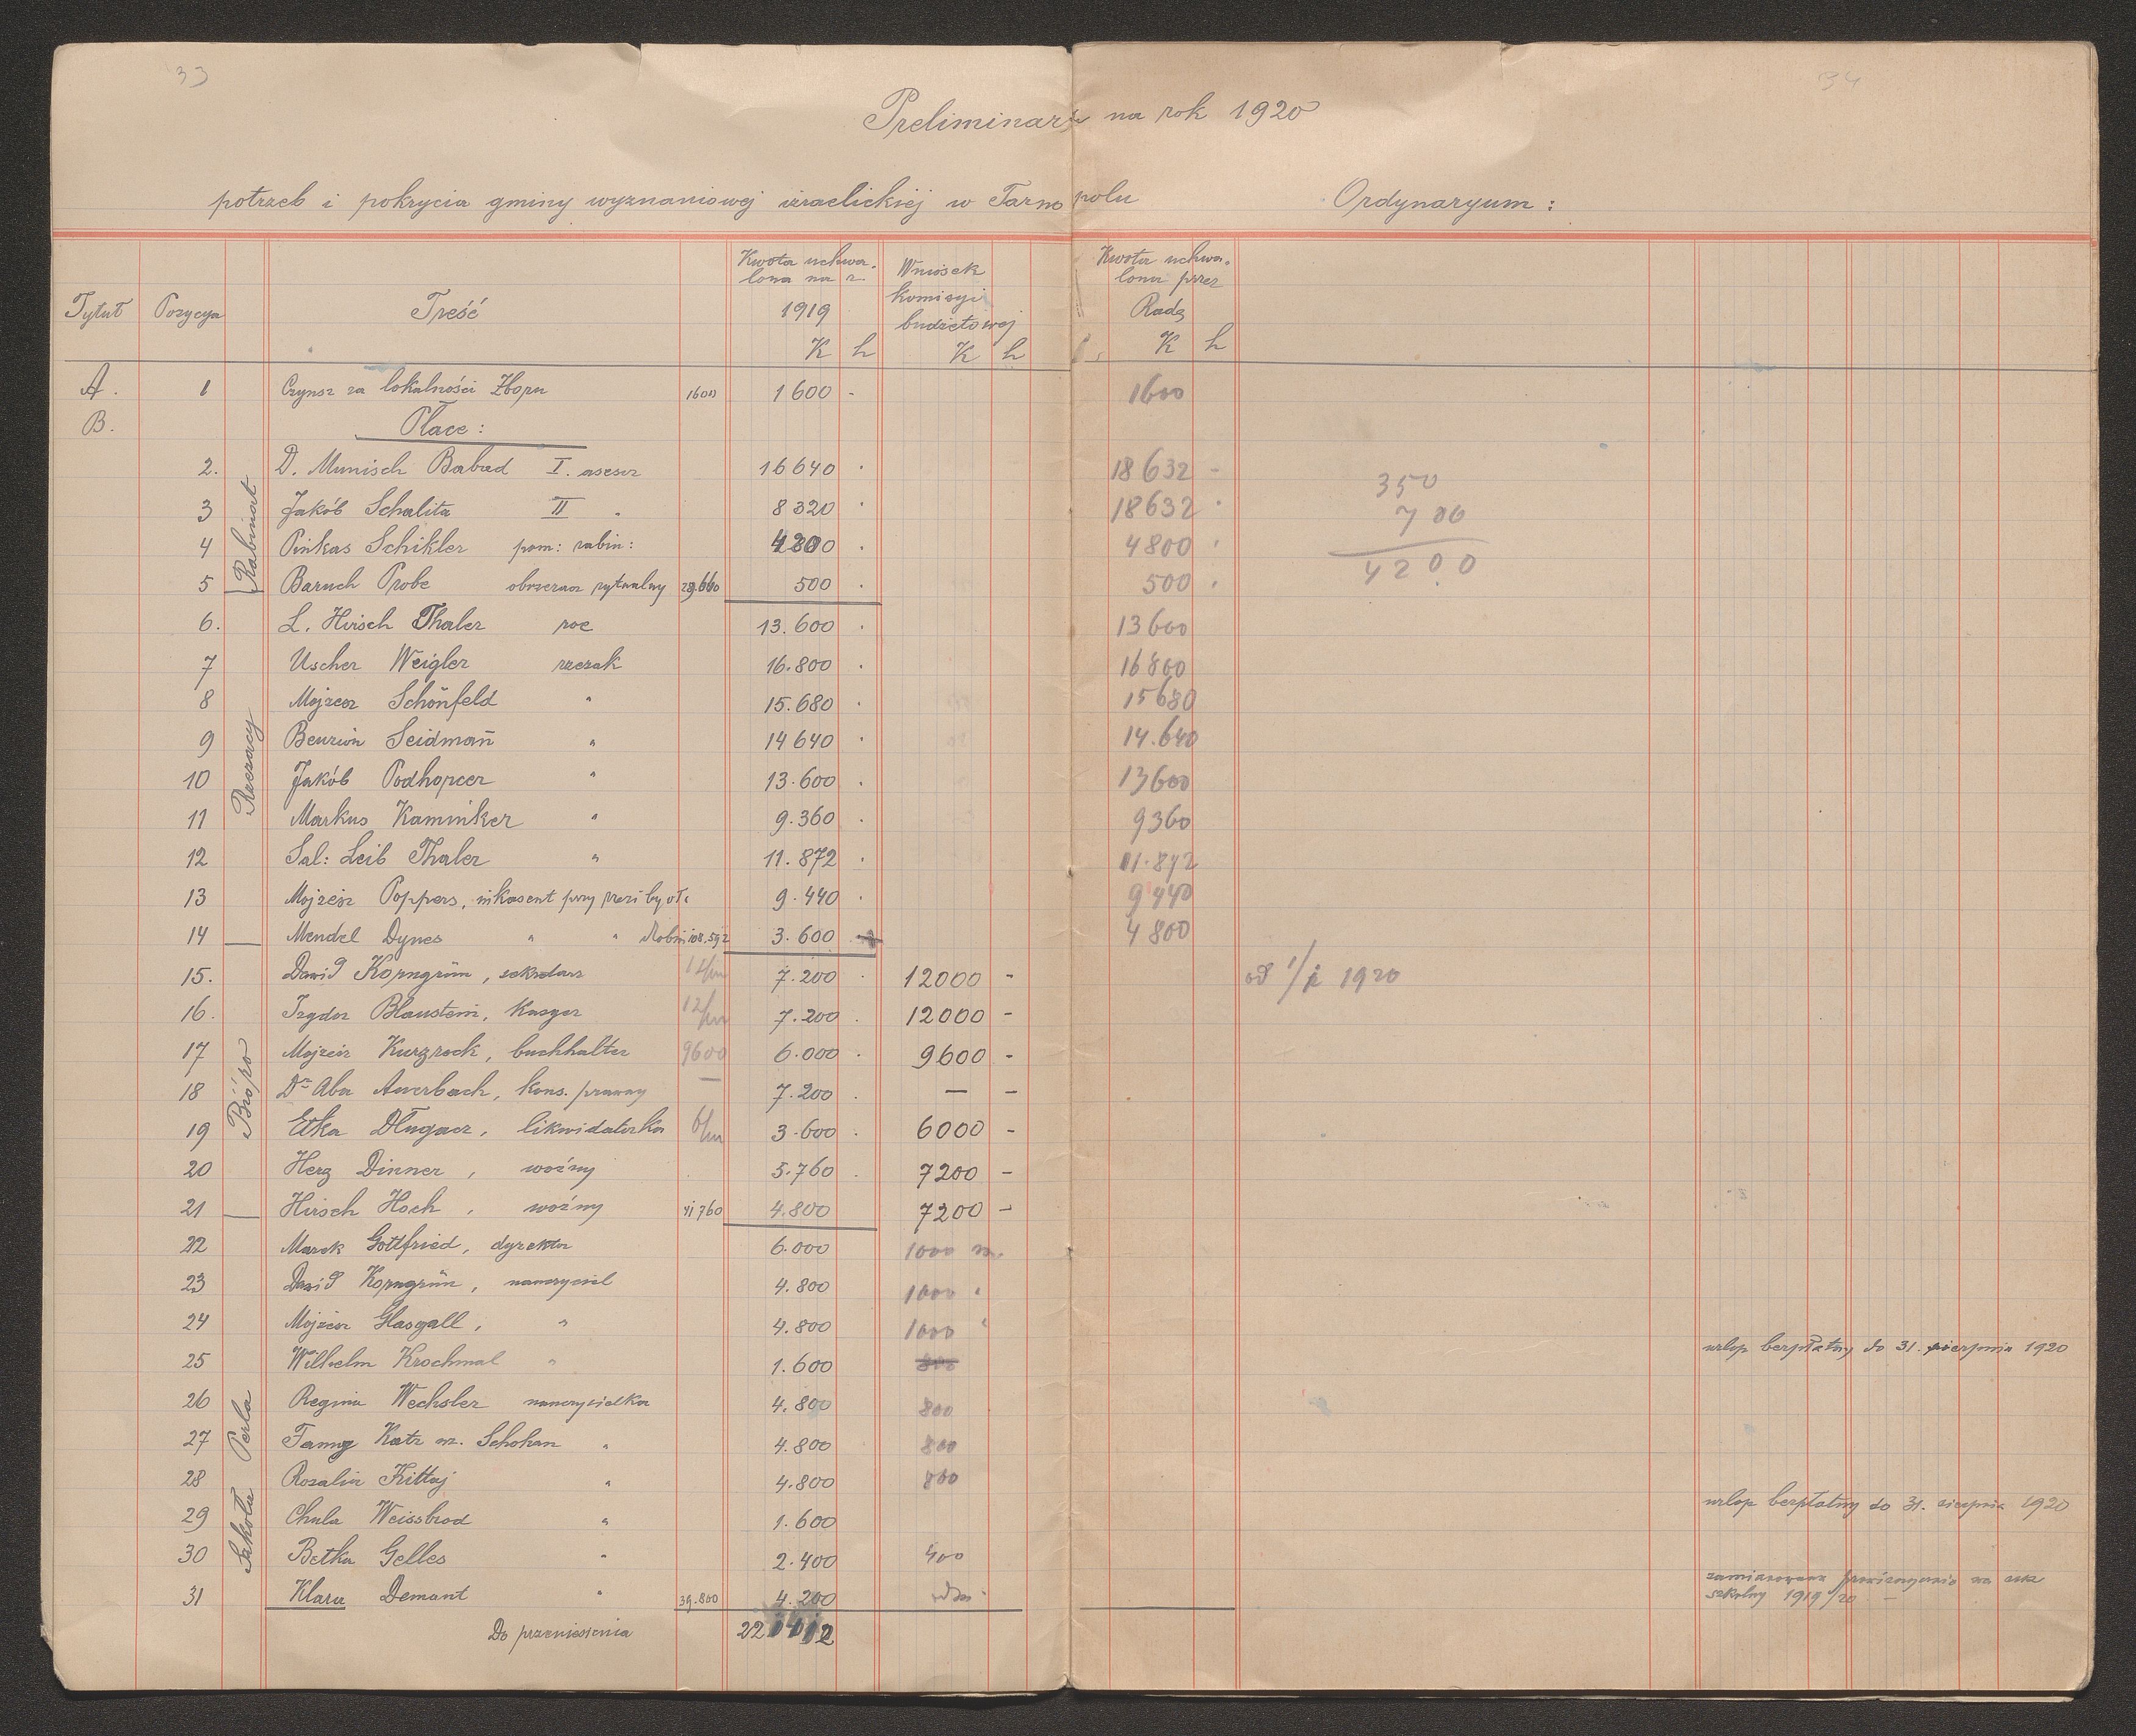 33
34
Preliminarz na rok 1920
potrzeb i pokrycia gminy wyznaniowej izraelickiej w Tarnopolu Ordynaryum :
Tytuł Pozycya Treść Kwota uchwalona na r. 1919 K h Wniosek komisyi budżetowej K h Kwota uchwalona przez Radę K h
A. 1 Czynsz za lokalności Zboru 1600 1600 - 1600
B. Płace :
Rabinat
2. D. Munisch Babad I. asesor 16640 . 18632 -
350
3 Jakób Schalita II " 8320 . 18632 .
700
4 Pinkas Schikler pom: rabin: 4200 . 4800 .
4200
5 Baruch Probe obrzezacz rytualny 500 . 500 .
Rzezacy
6. L. Hirsch Thaler 13.600 . 13600
7 Uscher Weigler rzezak 16.800 . 16800
8 Mojżesz Schönfeld " 15.680 . 15680
9 Benzion Seidmañ " 14640 . 14.640
10 Jakób Podhorcer " 13.600 . 13600
11 Markus Kaminker " 9.360 . 9360
12 Sal: Leib Thaler " 11.872 . 11.872
13 Mojżesz Poppers, inkasent przy rzezi bydła 9.440 . 9440
14 Mendel Dynes " " drobiu 108.592 3.600 4800
Bióro
15. Dawid Korngrün, sekretarz 12/m 7.200 . 12000 - od 1/1 1920
16. Izydor Blaustein, Kasyer 12/m 7.200 . 12000 -
17 Mojżesz Kurzrock, buchhalter 9600 6.000 . 9600 -
18 Dr Aba Auerbach, kons. prawny — 7.200 . — -
19 Etka Długacz, likwidatorka 6/m 3.600 . 6000 -
20 Herz Dinner, woźny 5.760 . 7200 -
21 Hirsch Hoch, woźny 41760 4.800 7200 -
Szkoła Perla
22 Marek Gottfried, dyrektor 6.000 1000 m.
23 Dawid Korngrün, nauczyciel 4.800 1000 "
24 Mojżesz Glasgall, " 4.800 1000 "
25 Wilhelm Krochmal " 1.600 800 urlop bezpłatny do 31. sierpnia 1920
26 Regina Wechsler nauczycielka 4.800 800
27 Fanny Katz m. Schohan " 4.800 800
28 Rozalia Kittaj " 4.800 800
29 Chula Weissbrod " 1.600 urlop bezpłatny do 31. sierpnia 1920
30 Betka Gelles " 2.400 400
31 Klara Demant " 39.800 4.200 zamianowana prowizorycznie na rok
szkolny 1919/20 —
Do przeniesienia